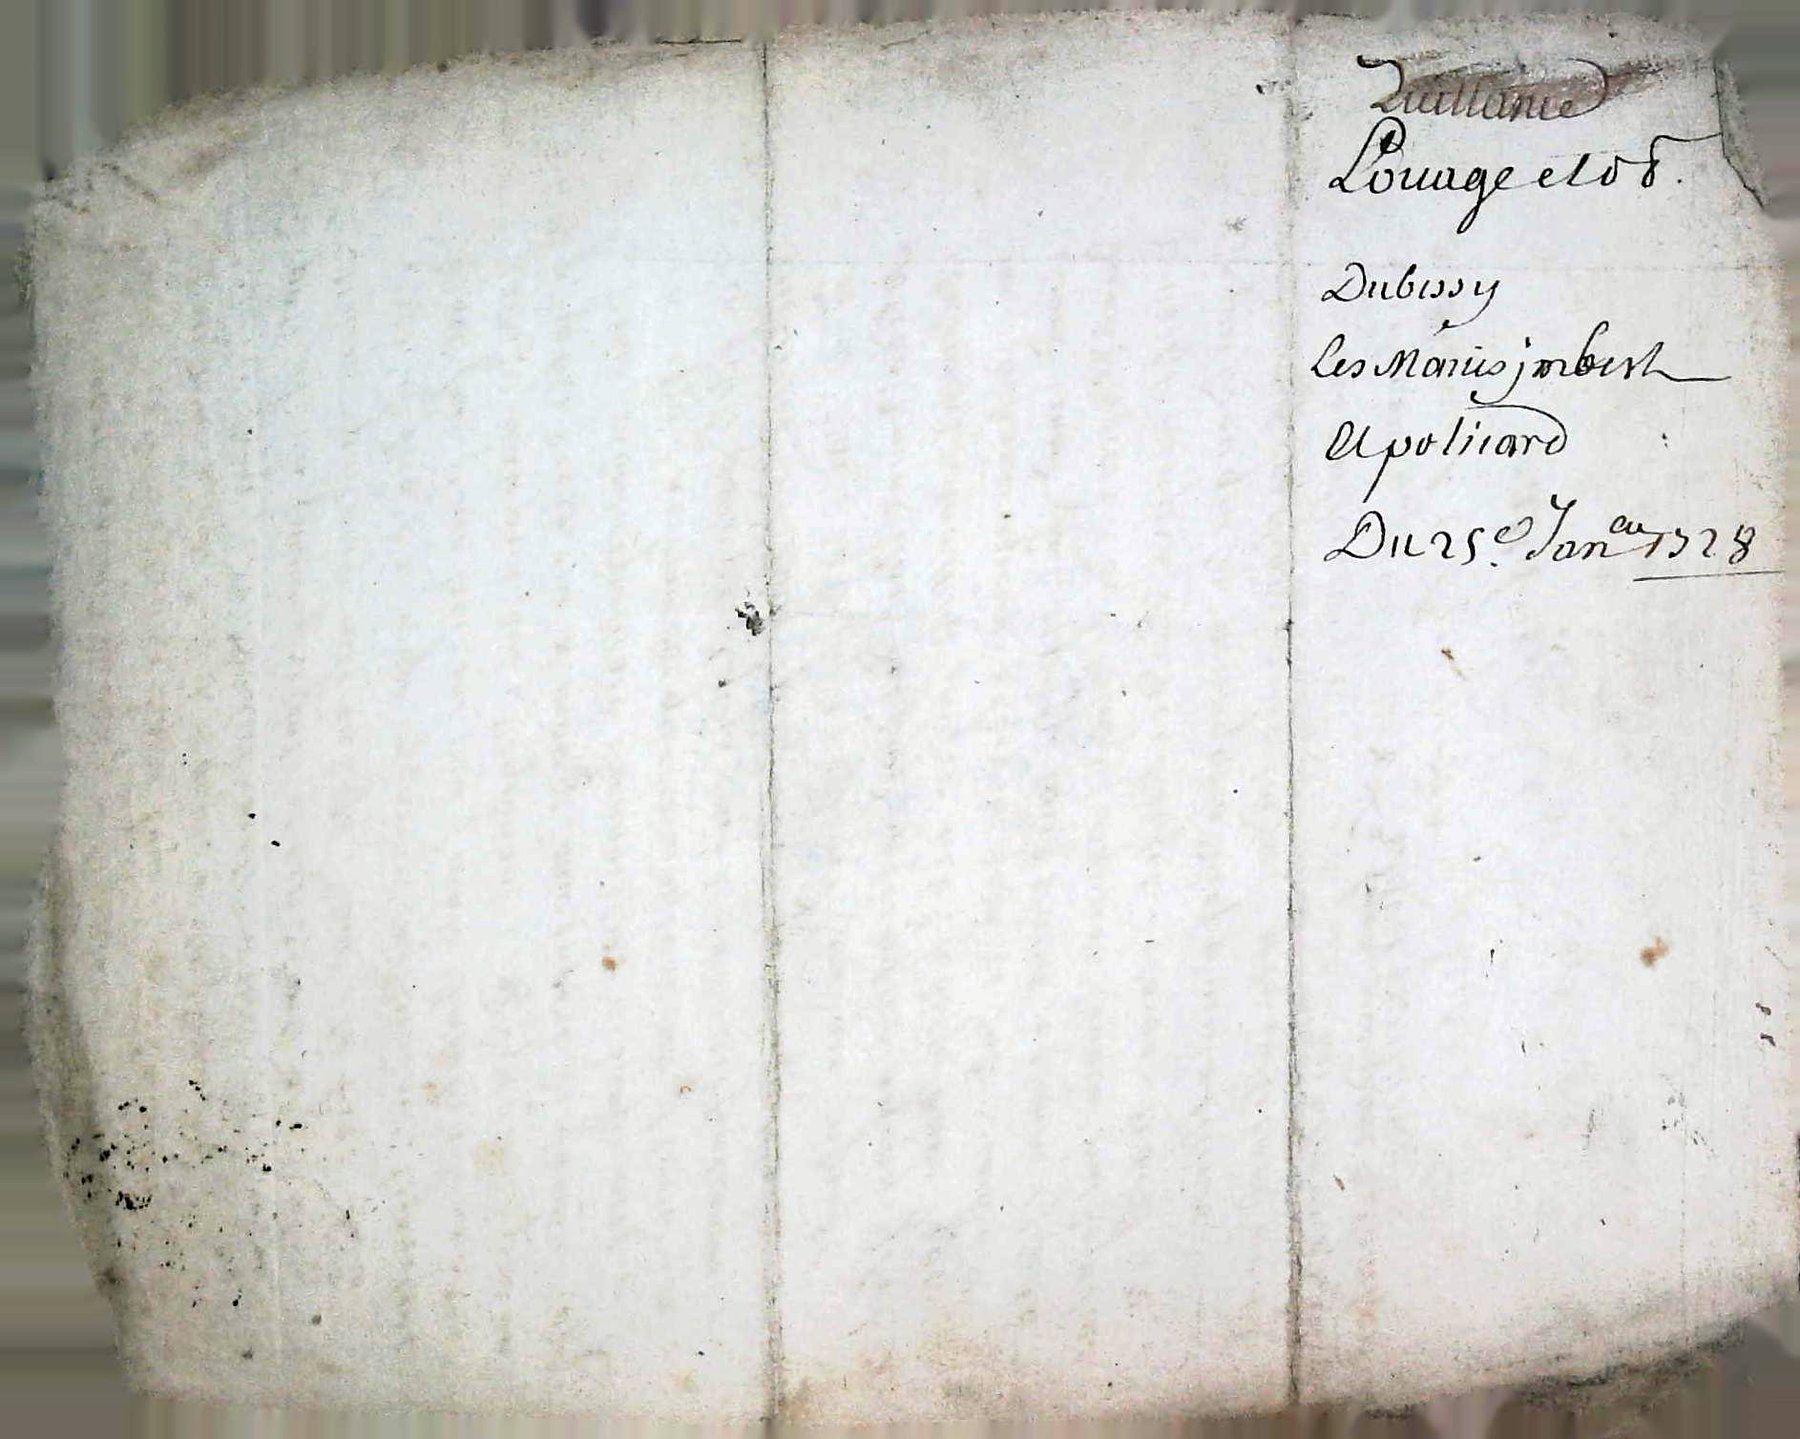 Quittance
Louage et 108.
Dubessy
Les Mariés jmbert
Et policard
Du 25.e Janer 1728